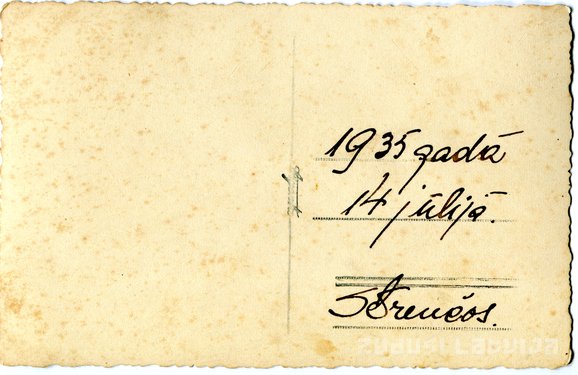 1935 gadā
14 jūlijā.
Strenčos.
ZUDUSI LATVIJA